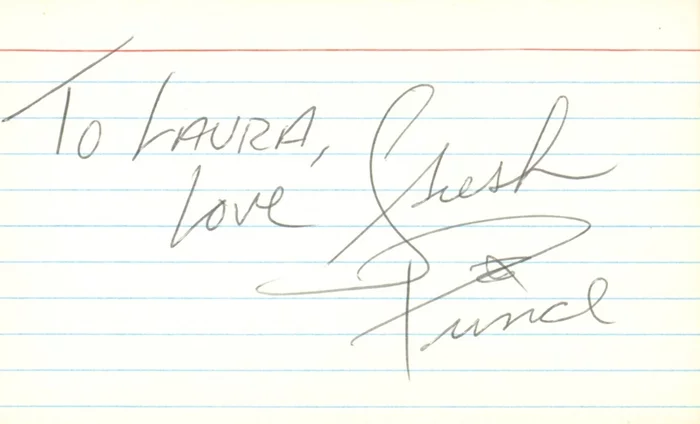 To LAURA,
Love Fresh
Prince